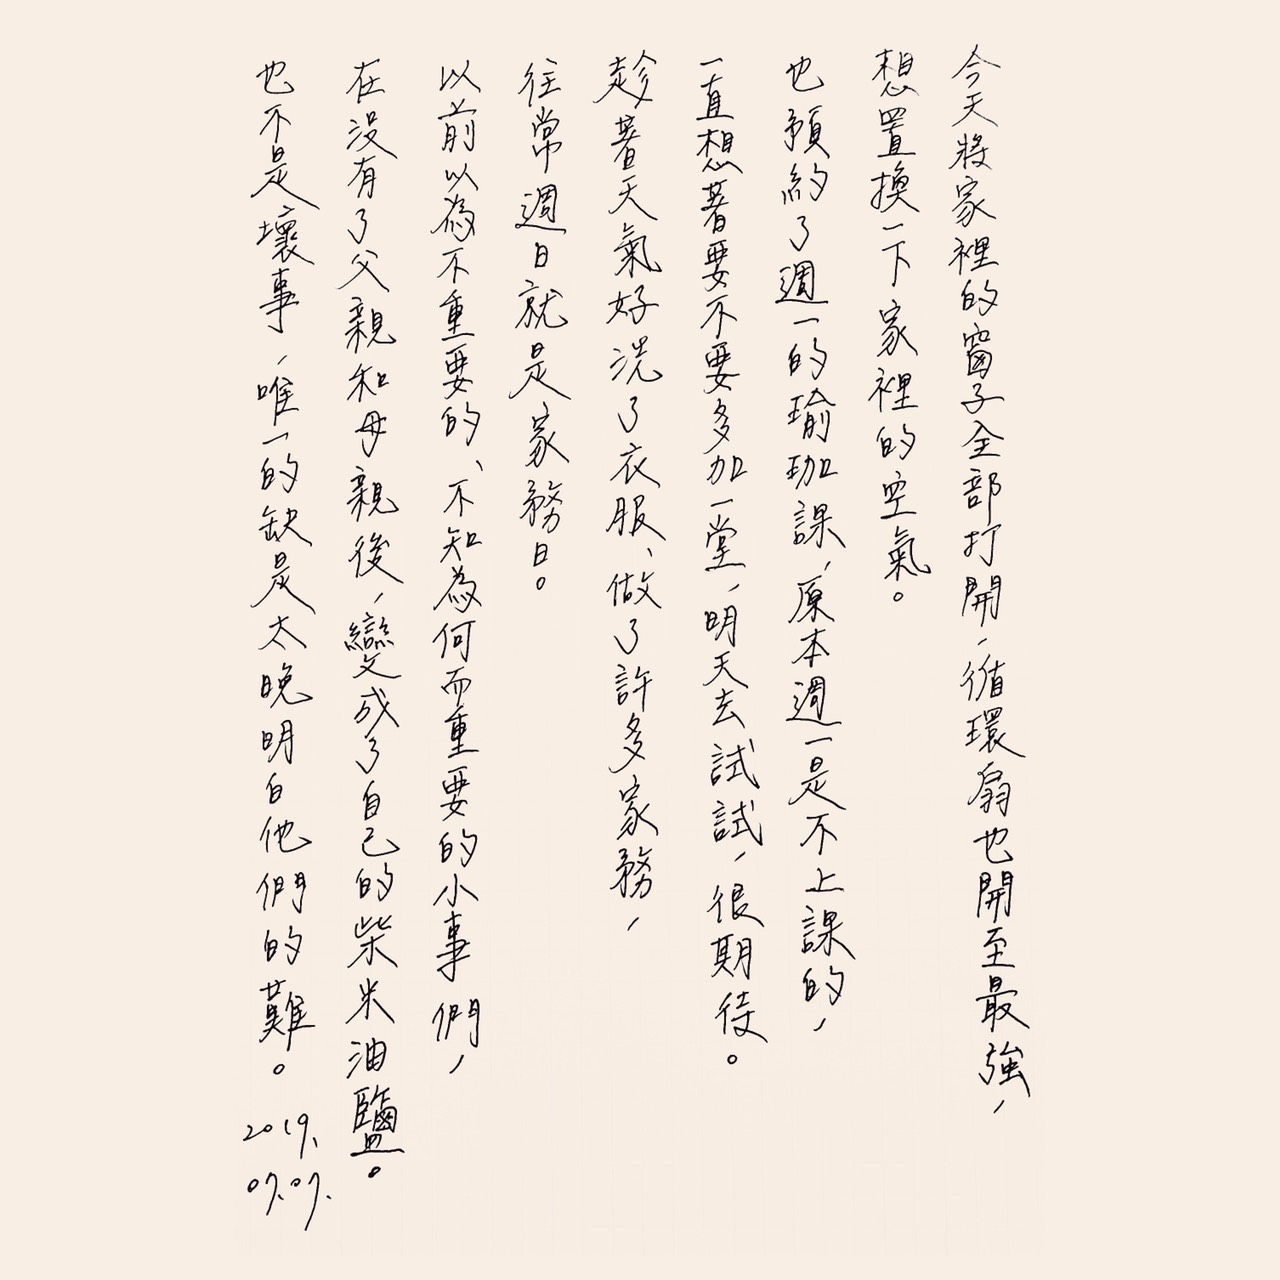 今天將家裡的窗子全部打開，循環扇也開至最強，
想置換一下家裡的空氣。
也預約了週一的瑜珈課，原本週一是不上課的，
一直想著要不要多加一堂，明天去試試，很期待。
趁著天氣好洗了衣服、做了許多家務，
往常週日就是家務日。
以前以為不重要的、不知為何而重要的小事們，
在沒有了父親和母親後，變成了自己的柴米油鹽。
也不是壞事，唯一的缺是太晚明白他們的難。
2019.
07.07.